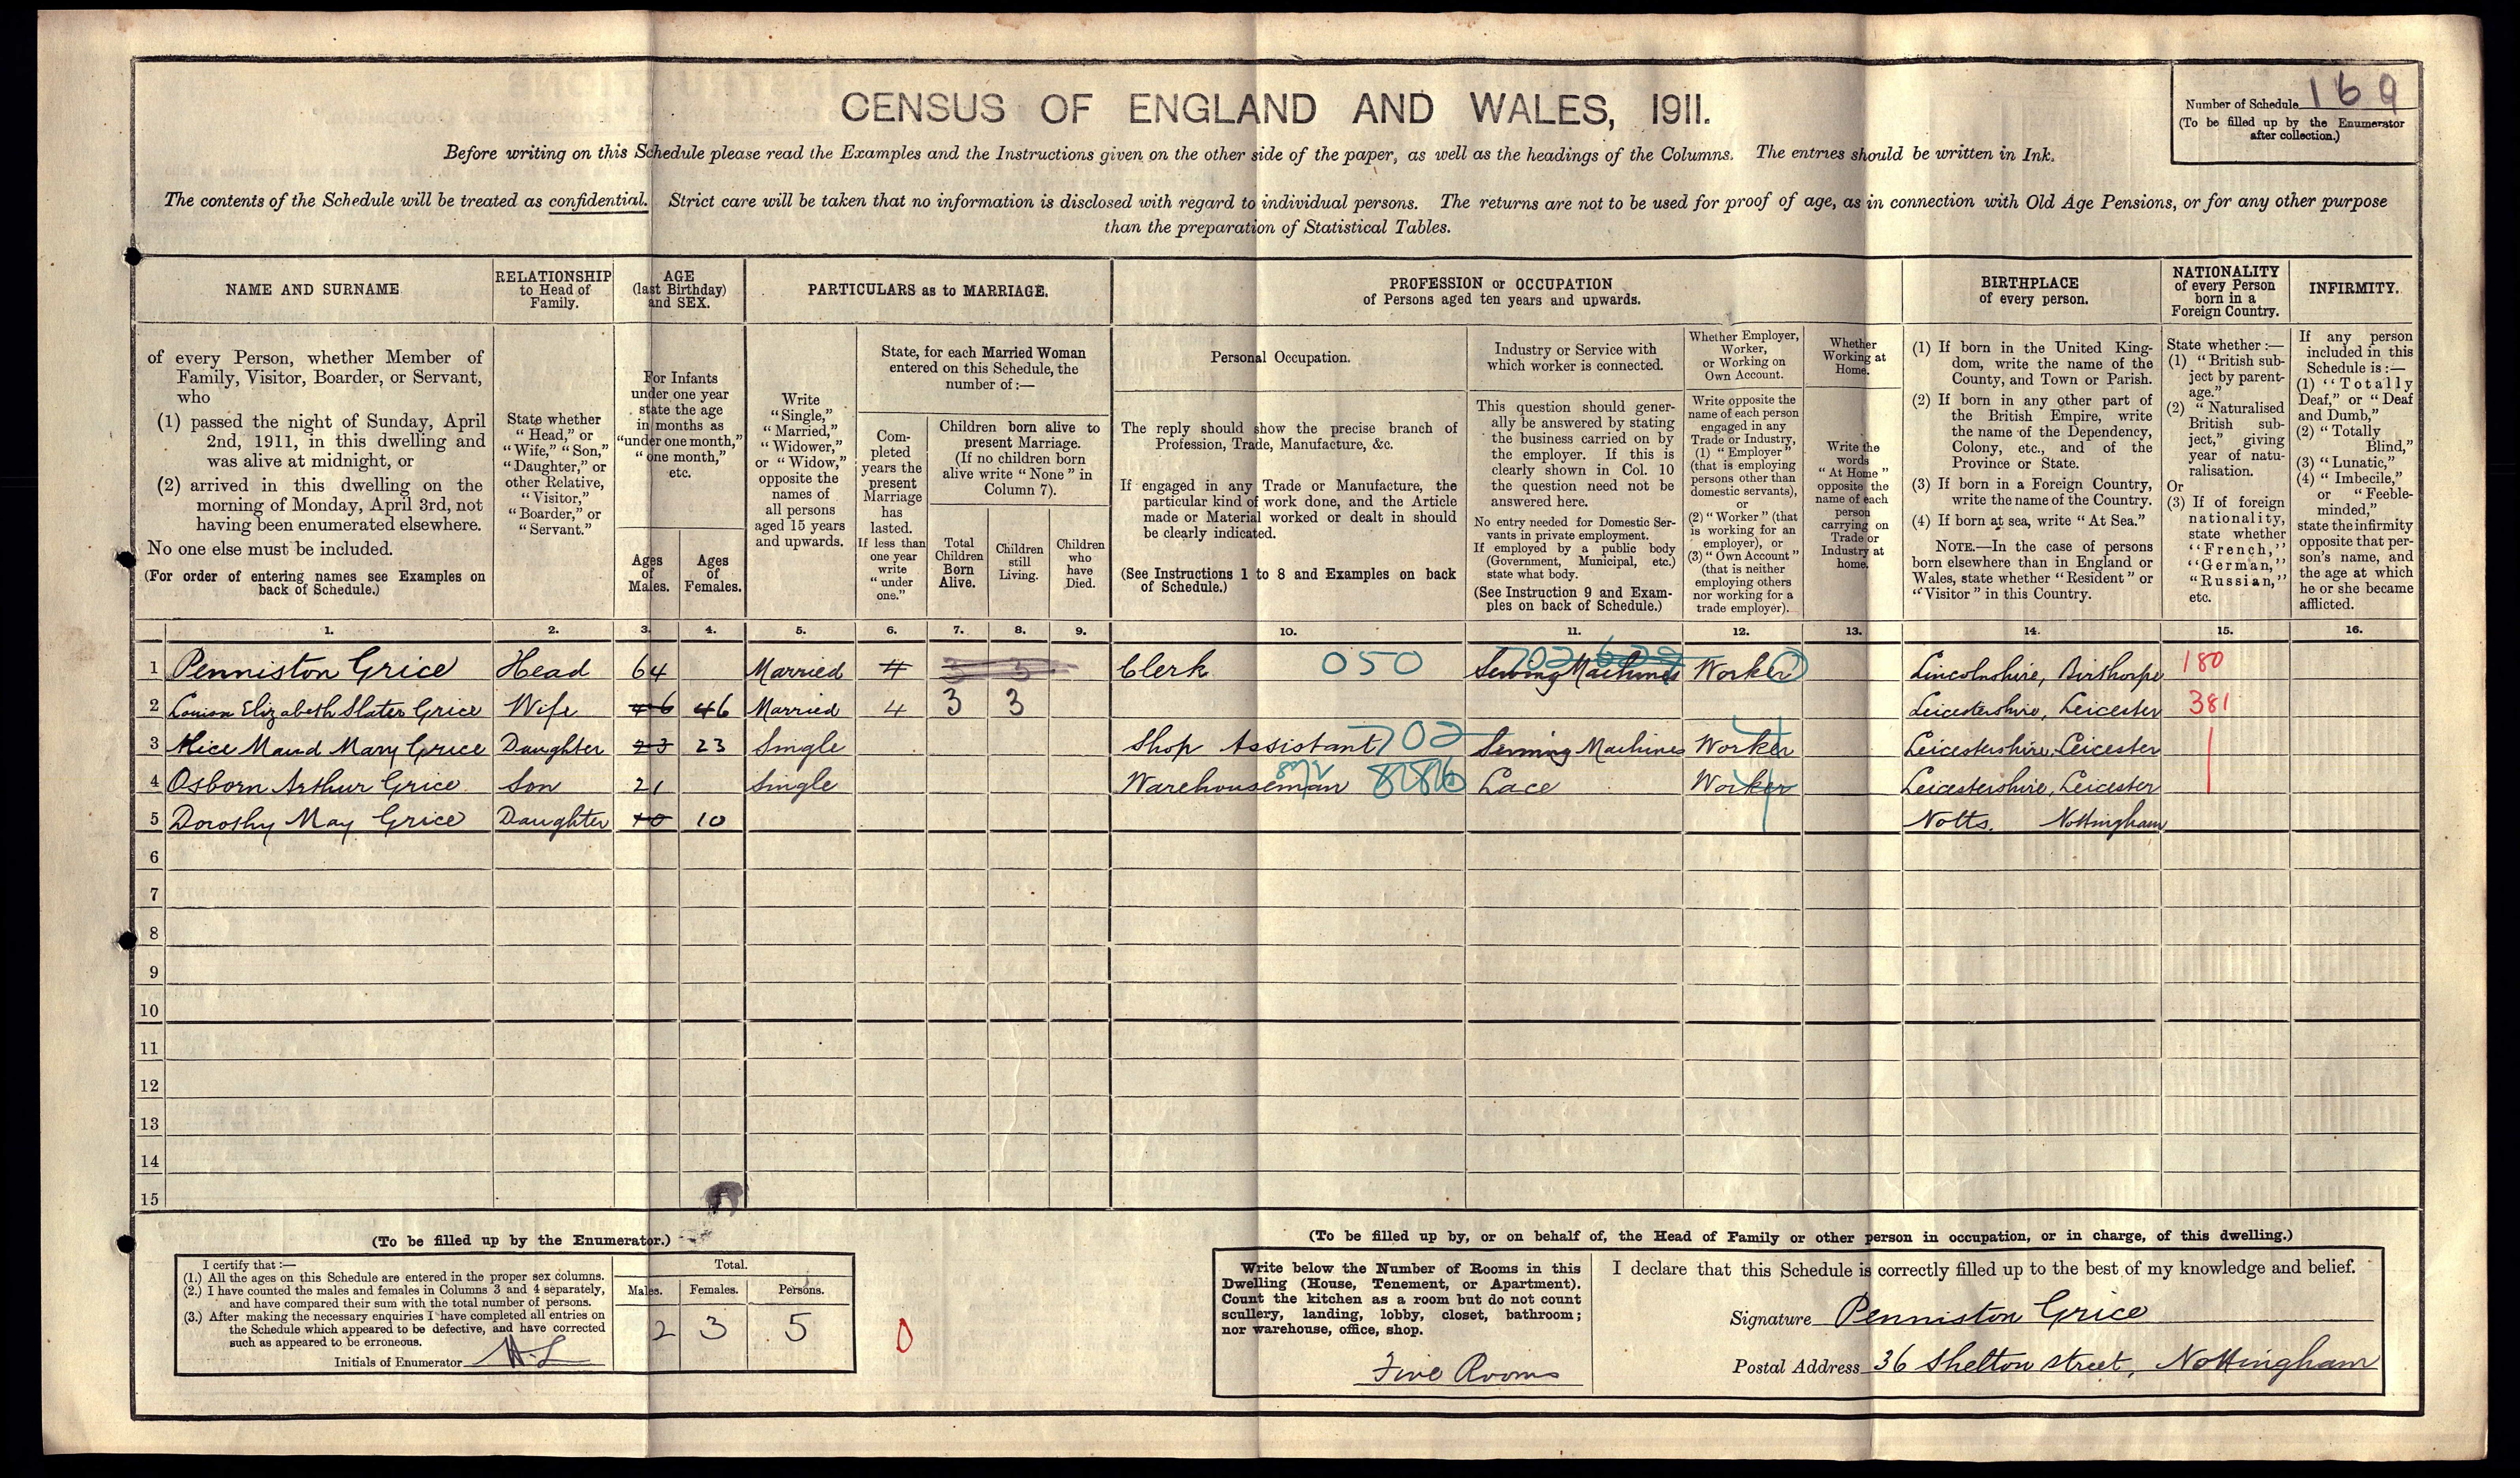 CENSUS OF ENGLAND AND WALES, 1911.
Number of Schedule 169
(To be filled up by the Enumerator
after collection.)
Before writing on this Schedule please read the Examples and the Instructions given on the other side of the paper, as well as the headings of the Columns. The entries should be written in Ink.
The contents of the Schedule will be treated as confidential. Strict care will be taken that no information is disclosed with regard to individual persons. The returns are not to be used for proof of age, as in connection with Old Age Pensions, or for any other purpose
than the preparation of Statistical Tables.
NAME AND SURNAME
of every Person, whether Member of
Family, Visitor, Boarder, or Servant,
who
(1) passed the night of Sunday, April
2nd, 1911, in this dwelling and
was alive at midnight, or
(2) arrived in this dwelling on the
morning of Monday, April 3rd, not
having been enumerated elsewhere.
No one else must be included.
(For order of entering names see Examples on
back of Schedule.)
RELATIONSHIP
to Head of
Family.
State whether
"Head," or
"Wife," "Son,"
"Daughter," or
other Relative,
"Visitor,"
"Boarder," or
"Servant."
AGE
(last Birthday)
and SEX.
For Infants
under one year
state the age
in months as
"under one month,"
"one month,"
etc.
Ages
of
Males.
Ages
of
Females.
PARTICULARS as to MARRIAGE.
Write
"Single,"
"Married,"
"Widower,"
or "Widow,"
opposite the
names of
all persons
aged 15 years
and upwards.
State, for each Married Woman
entered on this Schedule, the
number of:—
Com-
pleted
years the
present
Marriage
has
lasted.
If less than
one year
write
"under
one."
Children born alive to
present Marriage.
(If no children born
alive write "None" in
Column 7).
Total
Children
Born
Alive.
Children
still
Living.
Children
who
have
Died.
PROFESSION or OCCUPATION
of Persons aged ten years and upwards.
Personal Occupation.
The reply should show the precise branch of
Profession, Trade, Manufacture, &c.
If engaged in any Trade or Manufacture, the
particular kind of work done, and the Article
made or Material worked or dealt in should
be clearly indicated.
(See Instructions 1 to 8 and Examples on back
of Schedule.)
Industry or Service with
which worker is connected.
This question should gener-
ally be answered by stating
the business carried on by
the employer. If this is
clearly shown in Col. 10
the question need not be
answered here.
No entry needed for Domestic Ser-
vants in private employment.
If employed by a public body
(Government, Municipal, etc.)
state what body.
(See Instruction 9 and Exam-
ples on back of Schedule.)
Whether Employer,
Worker,
or Working on
Own Account.
Write opposite the
name of each person
engaged in any
Trade or Industry,
(1) "Employer"
(that is employing
persons other than
domestic servants),
or
(2) "Worker" (that
is working for an
employer), or
(3) "Own Account"
(that is neither
employing others
nor working for a
trade employer).
Whether
Working at
Home.
Write the
words
"At Home"
opposite the
name of each
person
carrying on
Trade or
Industry at
home.
BIRTHPLACE
of every person.
(1) If born in the United King-
dom, write the name of the
County, and Town or Parish.
(2) If born in any other part of
the British Empire, write
the name of the Dependency,
Colony, etc., and of the
Province or State.
(3) If born in a Foreign Country,
write the name of the Country.
(4) If born at sea, write "At Sea."
NOTE.—In the case of persons
born elsewhere than in England or
Wales, state whether "Resident" or
"Visitor" in this Country.
NATIONALITY
of every Person
born in a
Foreign Country.
State whether:—
(1) "British sub-
ject by parent-
age."
(2) "Naturalised
British sub-
ject," giving
year of natu-
ralisation.
Or
(3) If of foreign
nationality,
state whether
"French,"
"German,"
"Russian,"
etc.
INFIRMITY.
If any person
included in this
Schedule is:—
(1) "Totally
Deaf," or "Deaf
and Dumb,"
(2) "Totally
Blind,"
(3) "Lunatic,"
(4) "Imbecile,"
or "Feeble-
minded,"
state the infirmity
opposite that per-
son's name, and
the age at which
he or she became
afflicted.
1. 2. 3. 4. 5. 6. 7. 8. 9. 10. 11. 12. 13. 14. 15. 16.
1 Penniston Grice Head 64 Married 4 3 3 Clerk 050 Sewing Machines 702 Worker Lincolnshire, Birthorpe 180
2 Louisa Elizabeth Slater Grice Wife 46 46 Married 4 3 3 Leicestershire, Leicester 381
3 Alice Maud Mary Grice Daughter 23 23 Single Shop Assistant 702 Sewing Machines Worker Leicestershire, Leicester
4 Osborn Arthur Grice Son 21 Single Warehouseman Lace Worker Leicestershire, Leicester
5 Dorothy May Grice Daughter 10 10 Notts. Nottingham
6
7
8
9
10
11
12
13
14
15
(To be filled up by the Enumerator.)
I certify that:—
(1.) All the ages on this Schedule are entered in the proper sex columns.
(2.) I have counted the males and females in Columns 3 and 4 separately,
and have compared their sum with the total number of persons.
(3.) After making the necessary enquiries I have completed all entries on
the Schedule which appeared to be defective, and have corrected
such as appeared to be erroneous.
Initials of Enumerator H.L
Total.
Males. Females. Persons.
2 3 5
0
(To be filled up by, or on behalf of, the Head of Family or other person in occupation, or in charge, of this dwelling.)
Write below the Number of Rooms in this
Dwelling (House, Tenement, or Apartment).
Count the kitchen as a room but do not count
scullery, landing, lobby, closet, bathroom;
nor warehouse, office, shop.
Five Rooms
I declare that this Schedule is correctly filled up to the best of my knowledge and belief.
Signature Penniston Grice
Postal Address 36 Shelton Street, Nottingham